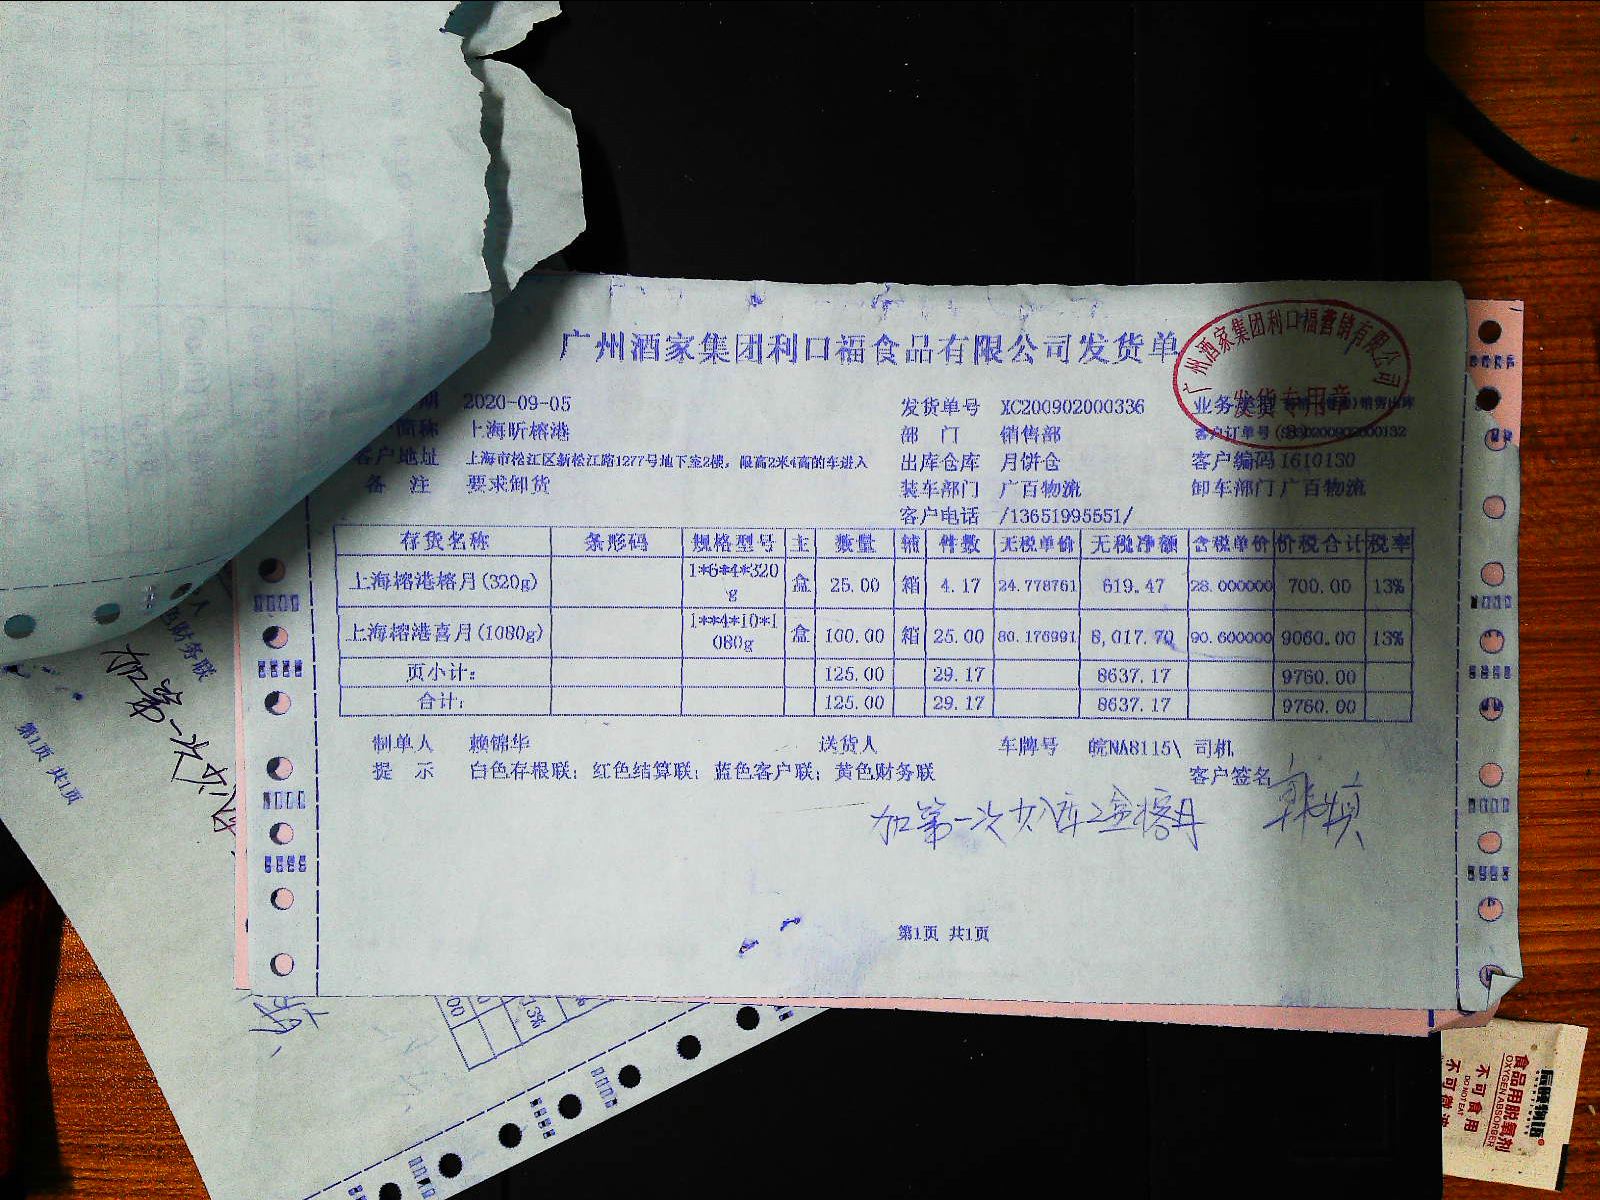 广州酒家集团利口福食品有限公司发货单
广州酒家集团利口福营销有限公司
发货专用章
期 2020-09-05 发货单号 XC200902000336 业务类型 销售出库
简称 上海昕榕港 部 门 销售部 客户订单号
客户地址 上海市松江区新松江路1277号地下室2楼，限高2米4高的车进入 出库仓库 月饼仓 客户编码 1610130
备 注 要求卸货 装车部门 广百物流 卸车部门 广百物流
客户电话 /13651995551/
存货名称 条形码 规格型号 主 数量 辅 件数 无税单价 无税净额 含税单价 价税合计 税率
上海榕港榕月(320g) 1*6*4*320g 盒 25.00 箱 4.17 24.778761 619.47 28.000000 700.00 13%
上海榕港喜月(1080g) 1**4*10*1080g 盒 100.00 箱 25.00 80.176991 8,017.70 90.600000 9060.00 13%
页小计: 125.00 29.17 8637.17 9760.00
合计: 125.00 29.17 8637.17 9760.00
制单人 赖锦华 送货人 车牌号 皖NA8115\ 司机
提 示 白色存根联; 红色结算联; 蓝色客户联; 黄色财务联 客户签名
加第一次
第1页 共1页
人
色财务联
加第一次
第1页 共1页
00
13%
食品用脱氧剂
OXYGEN ABSORBER
不可食用
DO NOT EAT
不可微波